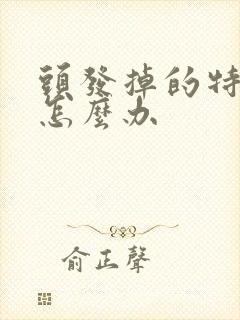 頭發掉的特
怎麼办
俞正聲